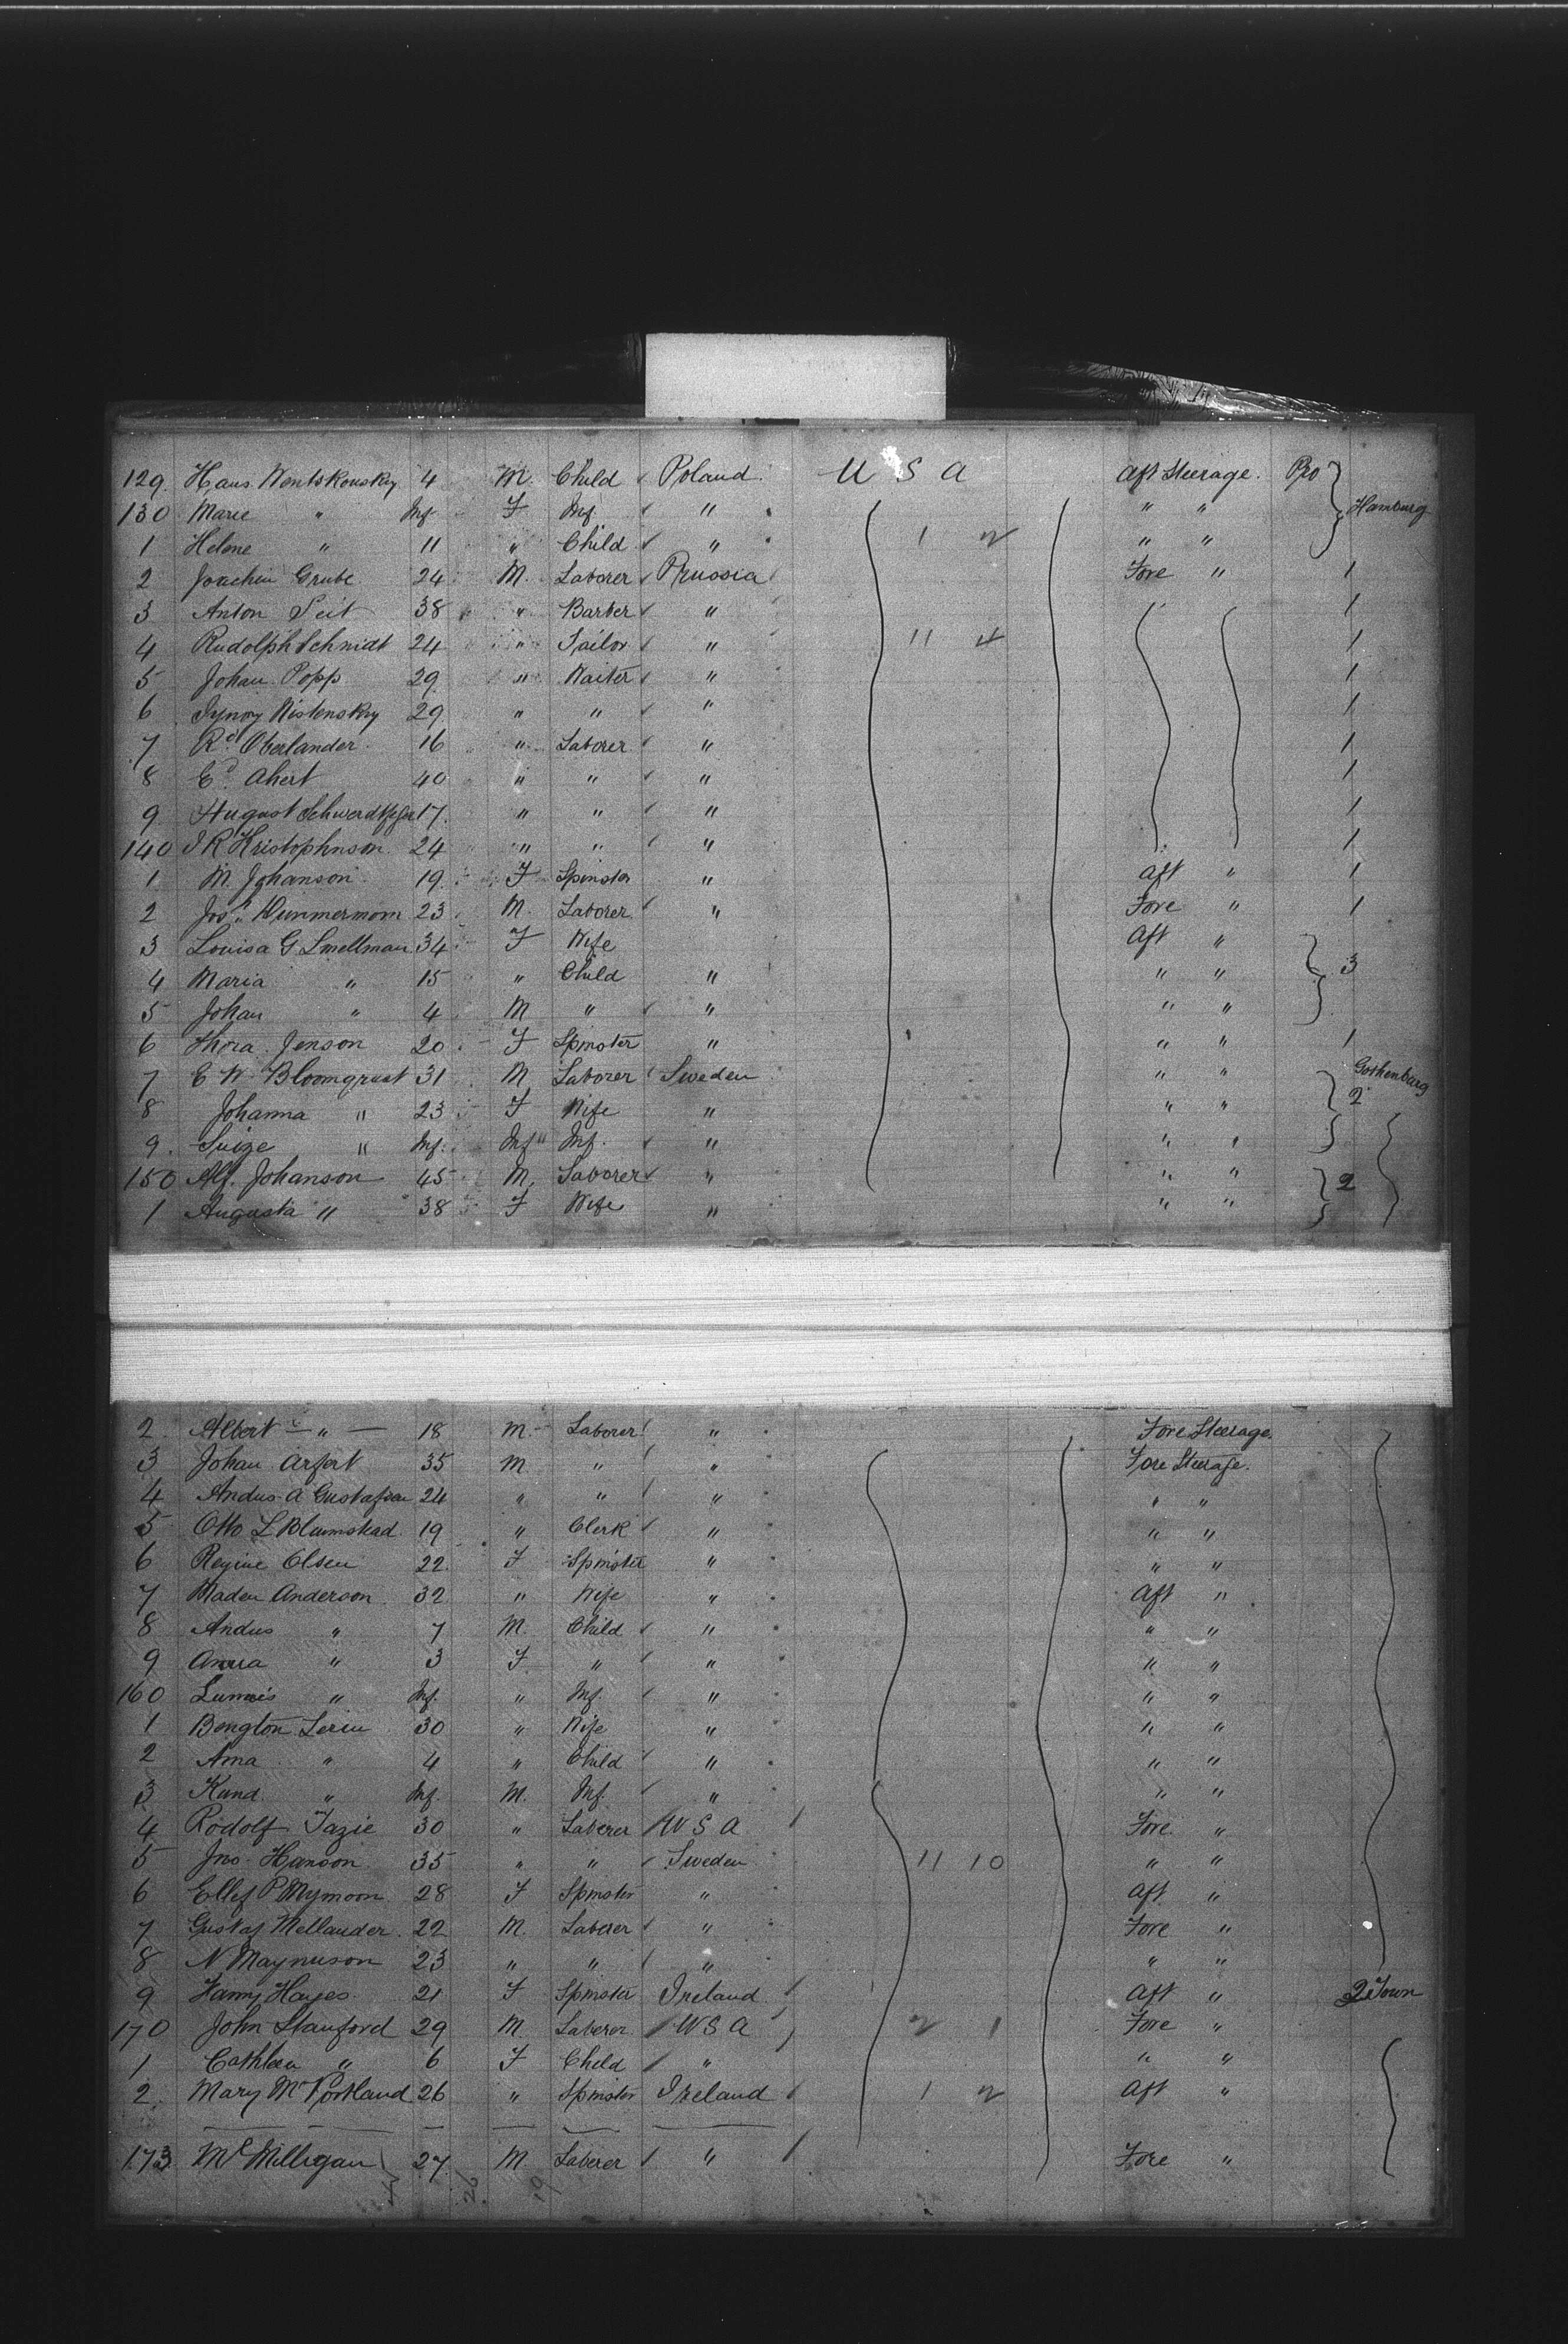 129. Hans Wentskousky 4 M. Child Poland. U S A Aft Steerage. Pro
130 Marie " Inf F Inf " " " Hamburg
1 Helene " 11 " Child " 1 2 " "
2 Joachim Grube 24 M. Laborer Prussia Fore " 1
3 Anton Seit 38 " Barber " 1
4 Rudolph Schmidt 24 " Tailor " 11 4 1
5 Johan Popp 29 " Waiter " 1
6 29 " " " 1
7 Rd. Oberlander 16 " Laborer " 1
8 Ed. Ahert 40 " " " 1
9 August 17. " " " 1
140 J R Kristophnson 24 " " " 1
1 M. Johanson 19. F Spinster " Aft " 1
2 Jos. 23 M. Laborer " Fore " 1
3 Louisa G Smellman 34 F Wife Aft "
4 Maria " 15 " Child " " " 3
5 Johan " 4 M " " " "
6 Thora Jenson 20 F Spinster " " " 1
7 E W Bloomqrast 31 M Laborer Sweden " " Gothenburg
8 Johanna " 23 F Wife " " " 2
9. " Inf. Inf " Inf. " " "
150 Alf. Johanson 45 M. Laborer " " " 2
1 Augusta " 38 F Wife " " "
2. Albert — " — 18 M. Laborer " Fore Steerage.
3 Johan Arfort 35 M " " Fore Steerage.
4 Andus A Gustafson 24 " " " " "
5 Otto L Blumstead 19 " Clerk " " "
6 Regine Olsen 22. F Spinster " " "
7 Maden Anderson 32 " Wife " Aft "
8 Andus " 7 M. Child " " "
9 Anna " 3 F " " " "
160 " Inf. " Inf. " " "
1 Bengton 30 " Wife " " "
2 Ama " 4 " Child " " "
3 Kand " Inf. M. Inf. " " "
4 Rodolf Tazie 30 " Laborer U S A Fore "
5 Jno. Hanson 35 " " Sweden 11 10 " "
6 Ellef P Mymoon 28 F Spinster " Aft "
7 Gustaf Mellander. 22 M. Laborer " Fore "
8 N Maynuson 23 " " " " "
9 Fanny Hayes 21 F Spinster Ireland. Aft " 2 Town
170 John Stanford 29 M. Laborer U S A 2 1 Fore "
1 Cathleen " 6 F Child " " "
2. Mary McPortland 26 " Spinster Ireland 1 2 Aft "
173 Mc Milligan 27. M Laborer " Fore "
26 19